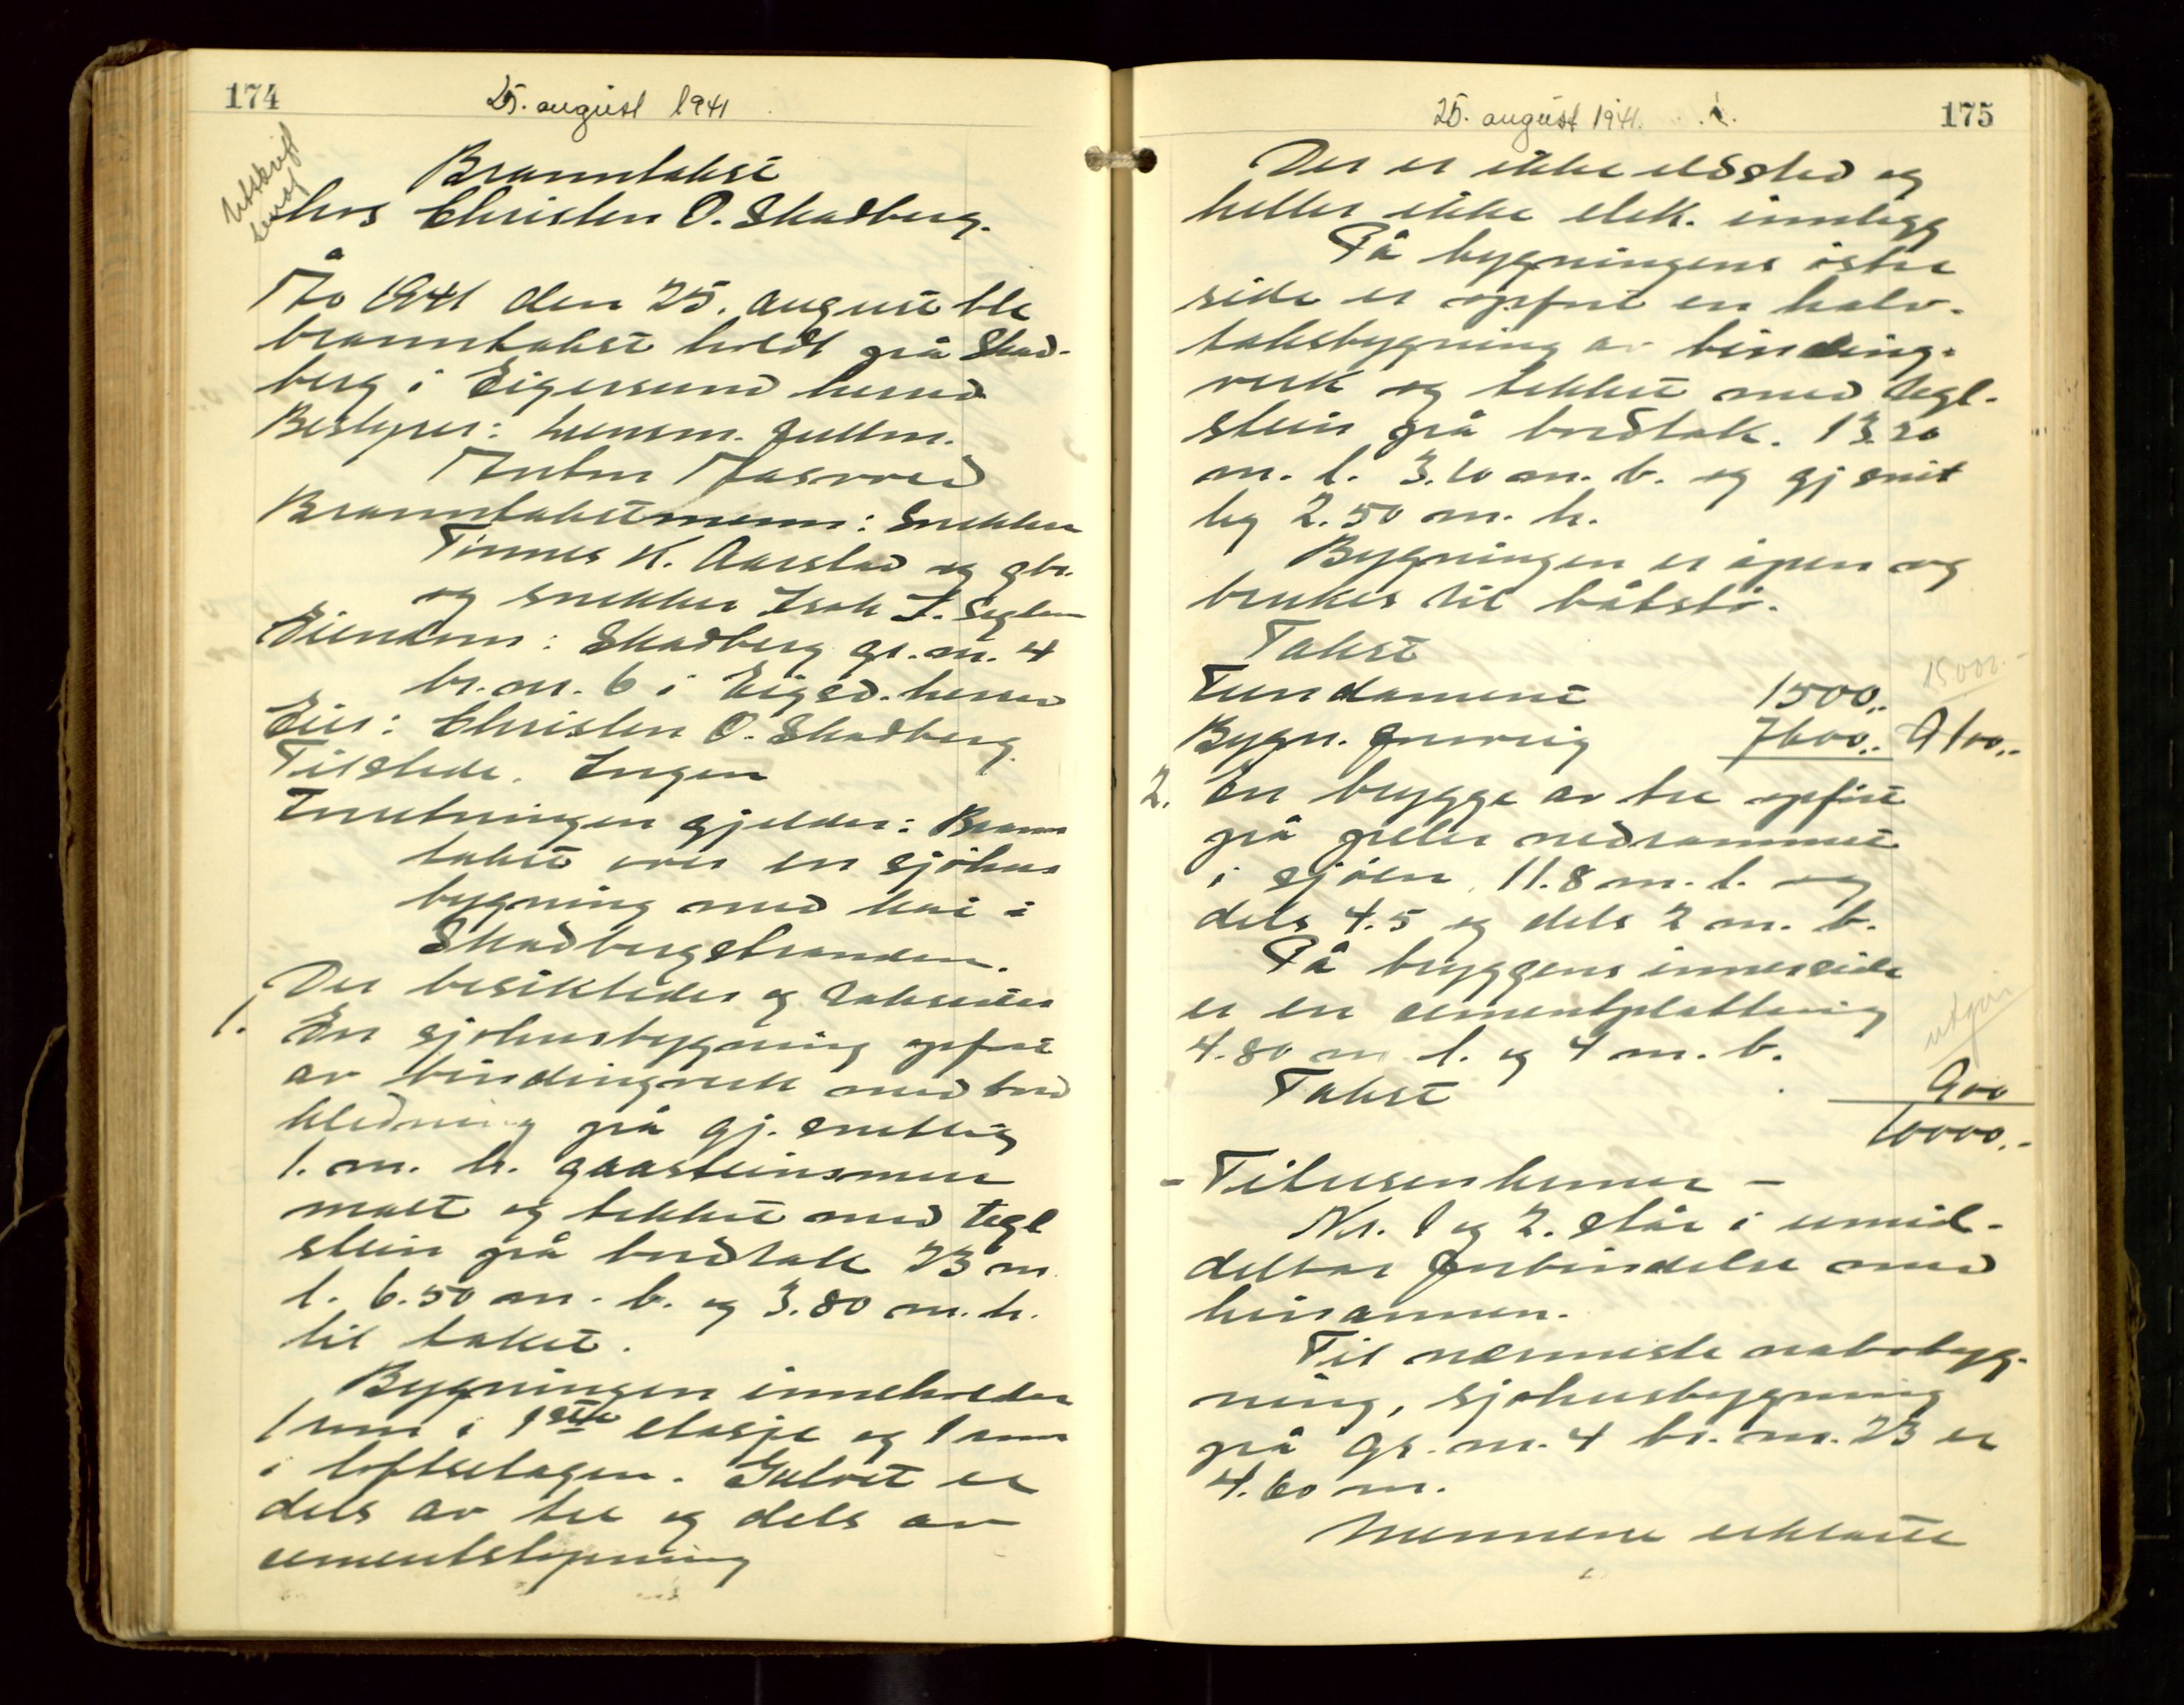 174
25. august 1941
Utskrift
send
Branntakst
hos Christen O. Skadberg.
År 1941 den 25. august ble
branntakst holdt på Skad-
berg i Eigersund herred
Bestyrer: lensm. fullm.
Anton Aasvod
Branntakstmenn: Snekker
Tønnes K. Aarstad og gbr.
og snekker Isak I. Seglem
Eiendom: Skadberg gr. nr. 4
br. nr. 6 i Eigsd. herred
Eier: Christen O. Skadberg.
Tilstede. Ingen
Innretningen gjelder: Brann
takst over en sjøhus
bygning med kai i
Skadbergstranden.
Der besiktedes og takseredes
1. En sjøhusbygning opført
av bindingverk med bord
kledning på gj. snittlig
1. m. h. gråsteinsmur
malt og tekket med tegl
stein på bordtak 23 m.
l. 6.50 m. b. og 3.80 m. h.
til taket.
Bygningen inneholder
1 rum i 1ste etasje og 1 rum
i loftsetagen. Gulvet er
dels av tre og dels av
cementstøpning
25. august 1941.
175
Der er ikke ildsted og
heller ikke elek. innlegg
På bygningens østre
side er opført en halv-
taksbygning av binding-
verk og tekket med tegl-
stein på bordtak. 13.20
m. l. 3.10 m. b. og gj snit
lig 2.50 m. h.
Bygningen er åpen og
brukes til båtstø.
Takst
15000.-
Fundament 1500,-
Bygn. forøvrig 7600,- 9100,-
2. En brygge av tre opført
på peler nedrammet
i sjøen, 11.8 m. l. og
dels 4.5 og dels 2 m. b.
På bryggens innerside
er en cementplattning
4.80 m l. og 4 m. b.
utgår
Takst 900
10000,-
- Tilusenhemer -
Nr. 1 og 2. står i umid-
delbar forbindelse med
hinannen.
Til nærmeste nabobyg-
ning, sjøhusbygning
på gr. nr. 4 br. nr. 23 er
4.60 m.
Mennene erklærte